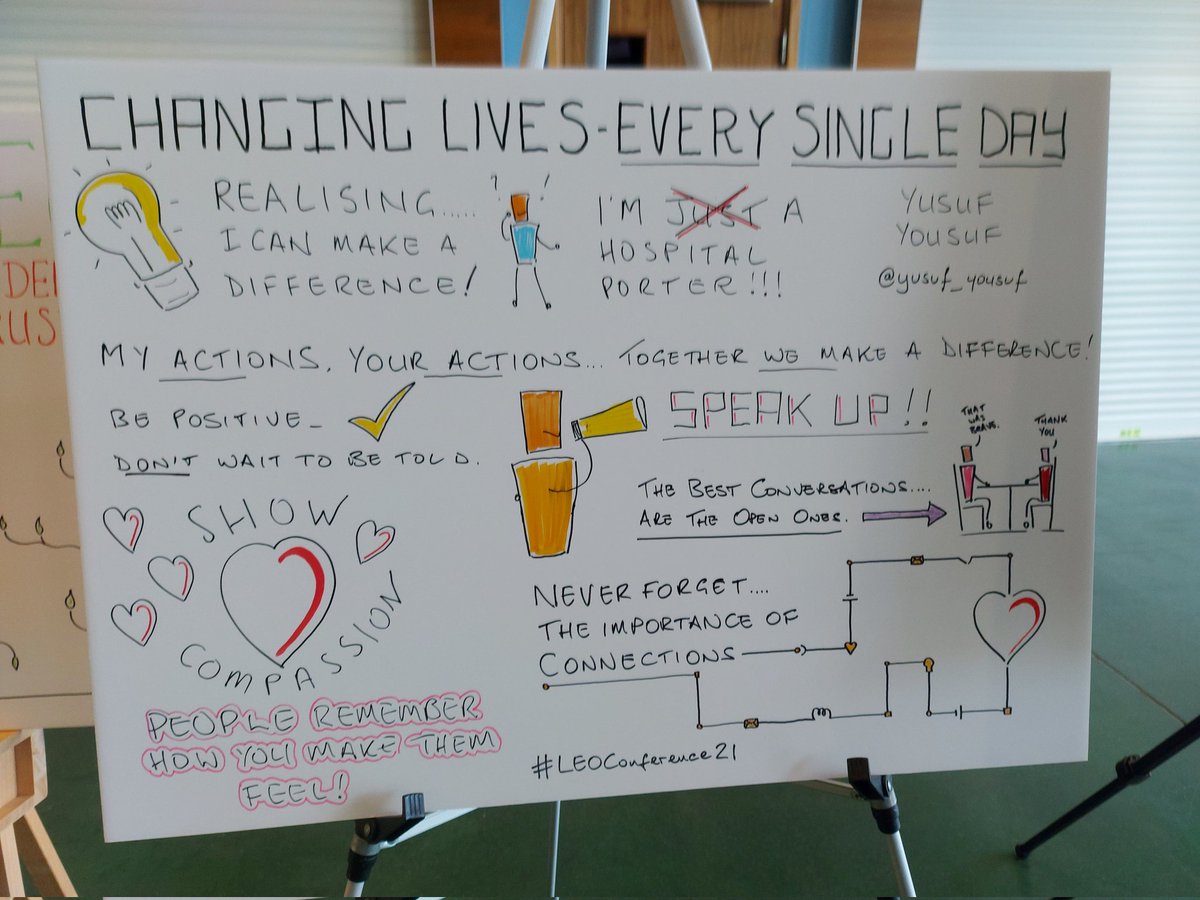 CHANGING LIVES - EVERY SINGLE DAY
REALISING.....
I CAN MAKE A
DIFFERENCE!
? !
I'M JUST A
HOSPITAL
PORTER!!!
YUSUF
YOUSUF
@yusuf_yousuf
MY ACTIONS, YOUR ACTIONS... TOGETHER WE MAKE A DIFFERENCE!
BE POSITIVE_
DON'T WAIT TO BE TOLD.
SPEAK UP!!
THAT
WAS
BRAVE.
THANK
YOU
THE BEST CONVERSATIONS....
ARE THE OPEN ONES.
SHOW
COMPASSION
NEVER FORGET....
THE IMPORTANCE OF
CONNECTIONS
PEOPLE REMEMBER
HOW YOU MAKE THEM
FEEL!
#LEOConference21